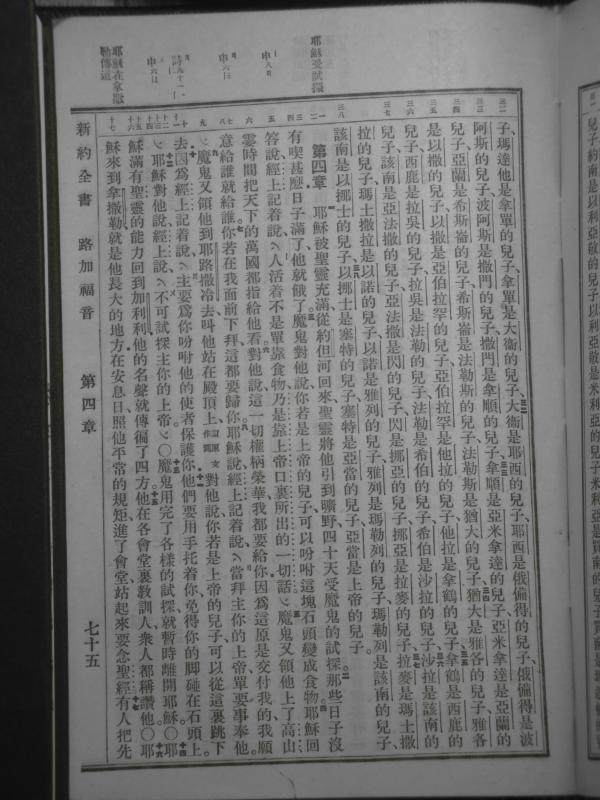 子、瑪達他是拿單的兒子、拿單是大衞的兒子、大衞是耶西的兒子、耶西是俄備得的兒子、俄備得是波
阿斯的兒子、波阿斯是撒門的兒子、撒門是拿順的兒子、拿順是亞米拿達的兒子、亞米拿達是亞蘭的
兒子、亞蘭是希斯崙的兒子、希斯崙是法勒斯的兒子、法勒斯是猶大的兒子、猶大是雅各的兒子、雅各
是以撒的兒子、以撒是亞伯拉罕的兒子、亞伯拉罕是他拉的兒子、他拉是拿鶴的兒子、拿鶴是西鹿的
兒子、西鹿是拉吳的兒子、拉吳是法勒的兒子、法勒是希伯的兒子、希伯是沙拉的兒子、沙拉是該南的
兒子、該南是亞法撒的兒子、亞法撒是閃的兒子、閃是挪亞的兒子、挪亞是拉麥的兒子、拉麥是瑪土撒
拉的兒子、瑪土撒拉是以諾的兒子、以諾是雅列的兒子、雅列是瑪勒列的兒子、瑪勒列是該南的兒子、
該南是以挪士的兒子、以挪士是塞特的兒子、塞特是亞當的兒子、亞當是上帝的兒子。
第四章 耶穌被聖靈充滿、從約但河回來、聖靈將他引到曠野、四十天受魔鬼的試探、那些日子沒
有喫甚麽、日子滿了、他就餓了。魔鬼對他說、你若是上帝的兒子、可以吩咐這塊石頭變成食物。耶穌回
答說、經上記着說、人活着不是單靠食物、乃是靠上帝口裏所出的一切話。魔鬼又領他上了高山、
霎時間把天下的萬國都指給他看、對他說、這一切權柄榮華、我都要給你、因爲這原是交付我的、我願
意給誰就給誰、你若在我面前下拜、這都要歸你。耶穌說、經上記着說、當拜主你的上帝、單要事奉他。
魔鬼又領他到耶路撒冷去、叫他站在殿頂上、對他說、你若是上帝的兒子、可以從這裏跳下
去、因爲經上記着說、主要爲你吩咐他的使者保護你、他們要用手托着你、免得你的脚碰在石頭上。
耶穌對他說、經上說、不可試探主你的上帝。○魔鬼用完了各樣的試探、就暫時離開耶穌。○耶
穌滿有聖靈的能力、回到加利利、他的名聲就傳徧了四方、他在各會堂裏教訓人、衆人都稱讚他。○耶
穌來到拿撒勒、就是他長大的地方、在安息日、照他平常的規矩、進了會堂、站起來要念聖經、有人把先
新約全書 路加福音 第四章 七十五
耶穌受試探
耶穌在拿撒勒傳道